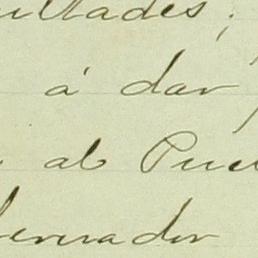 ultades;
á dar
al Pue
bernador